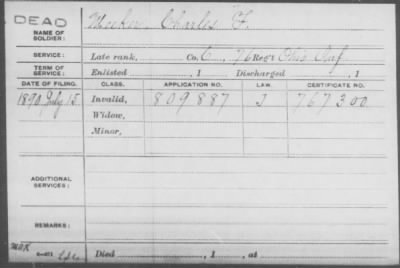 DEAD
NAME OF SOLDIER: Meeker, Charles F.
SERVICE: Late rank, Co. C, 76 Reg't Ohio Inf.
TERM OF SERVICE: Enlisted , 1 Discharged , 1
DATE OF FILING. CLASS. APPLICATION NO. LAW. CERTIFICATE NO.
1890 July 15. Invalid, 809887 J 767300
Widow,
Minor,
ADDITIONAL SERVICES:
REMARKS:
Died , 1 , at